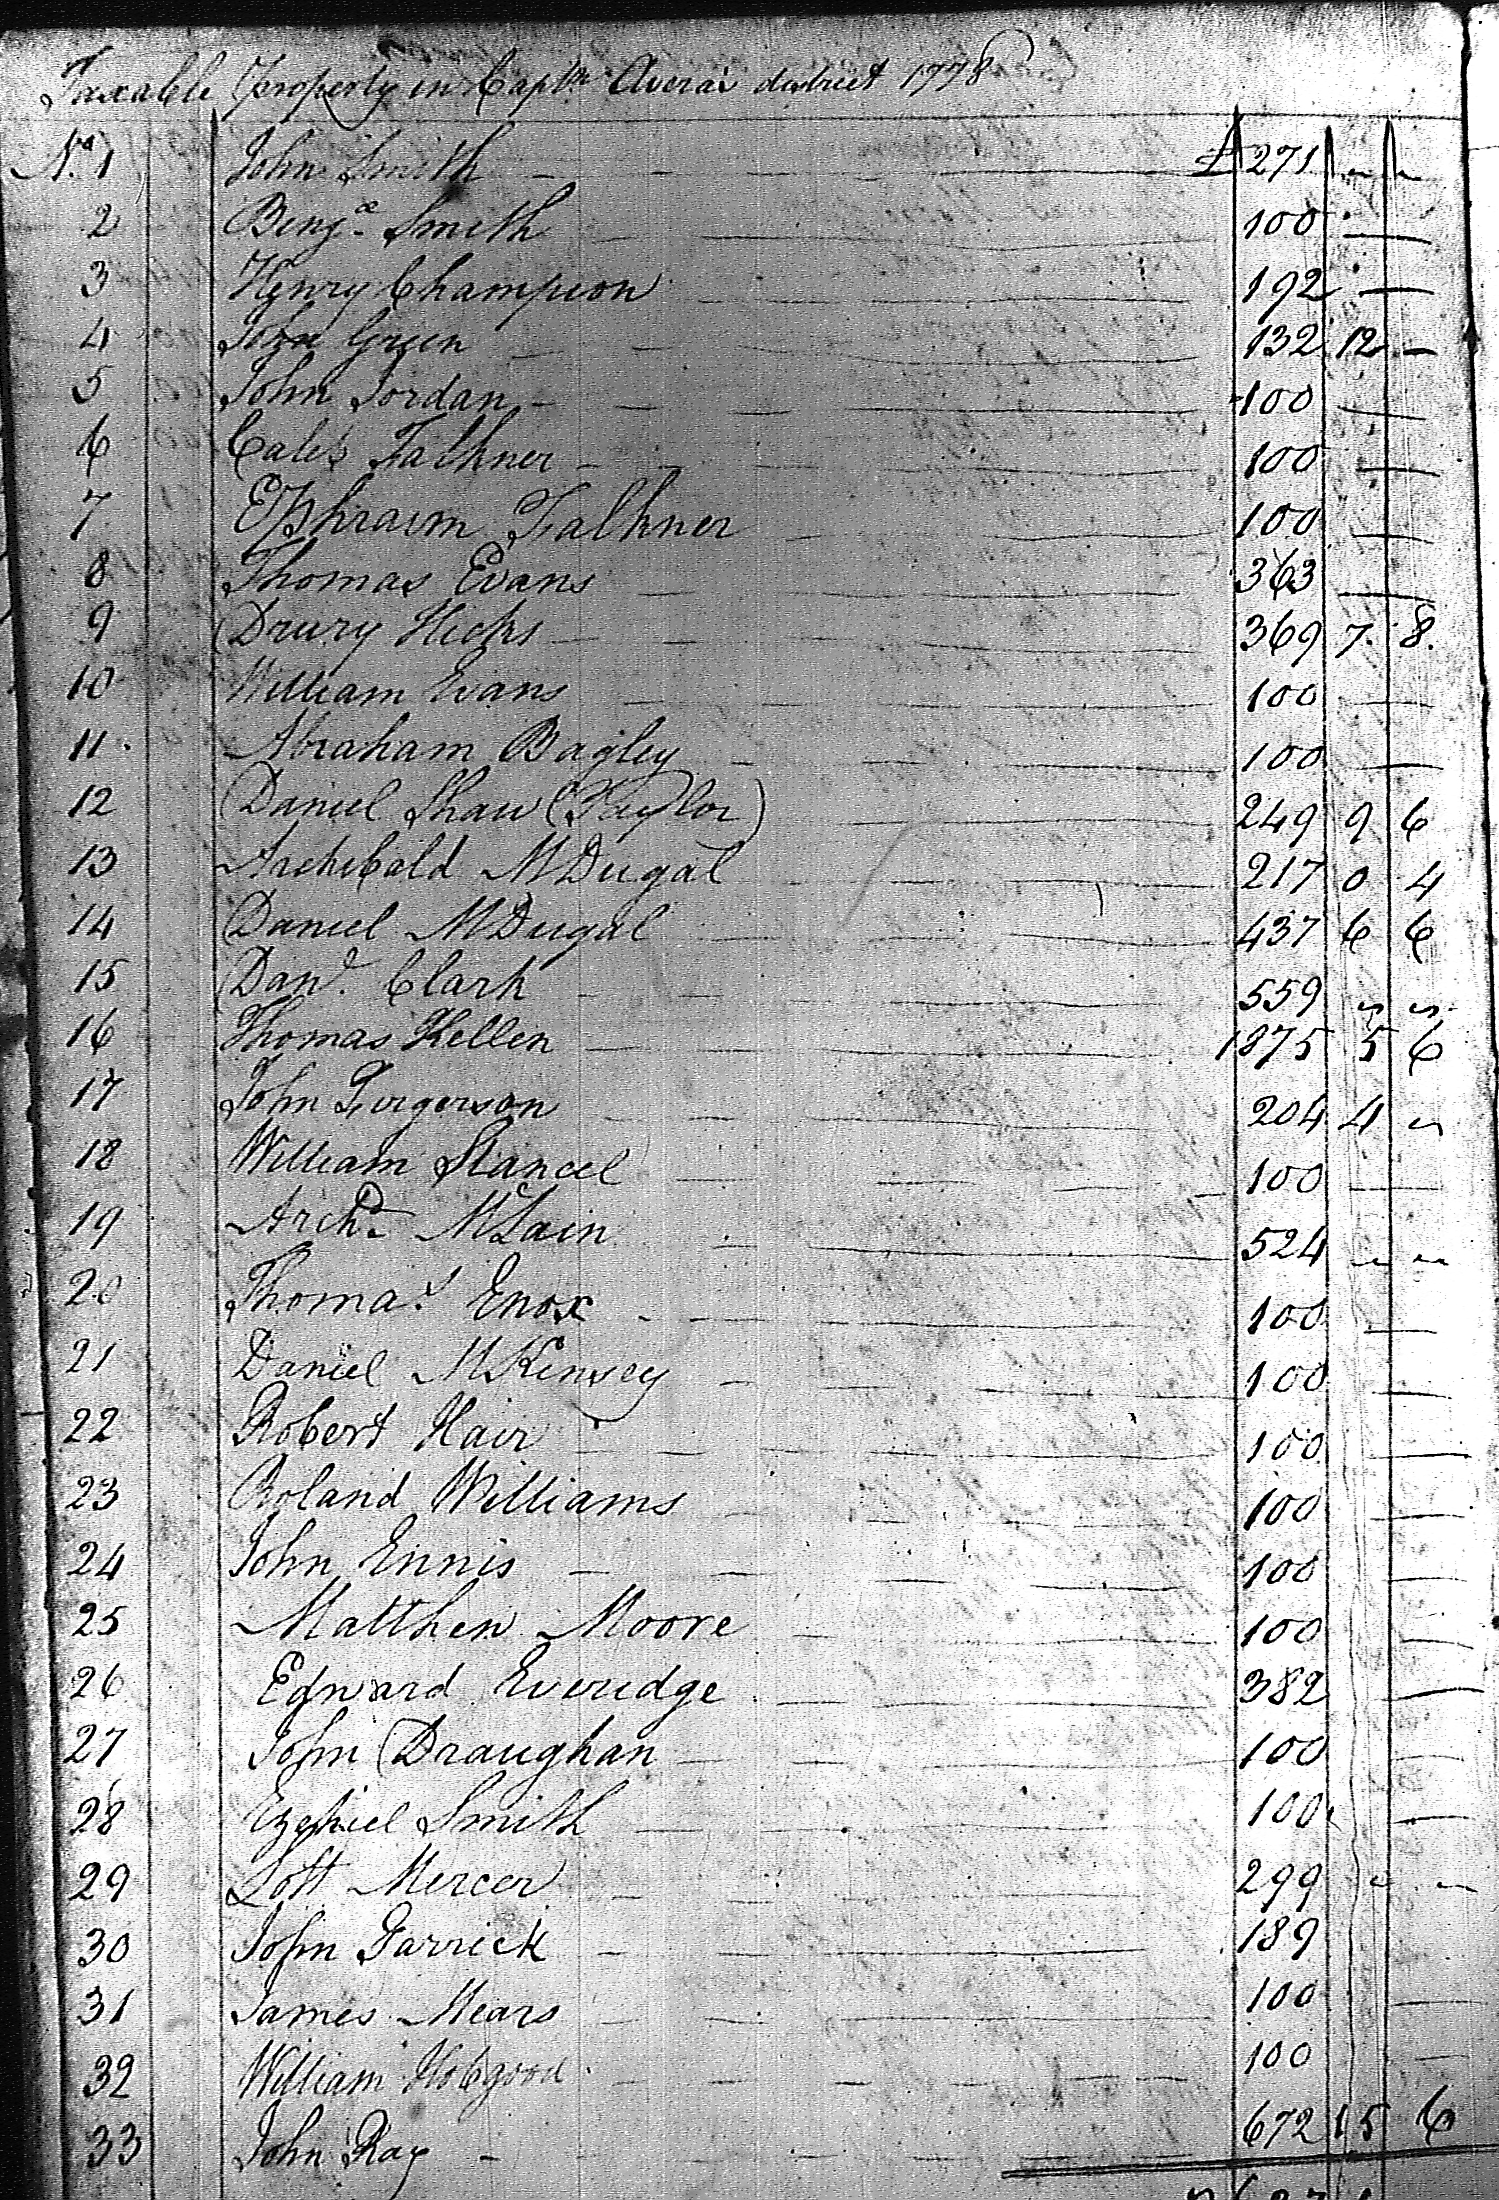 Taxable Property in Captn. Averas district 1778
No. 1 John Smith £ 271 " "
2 Benja. Smith 100
3 Henry Champion 192
4 John Green 132 12 —
5 John Jordan 100
6 Caleb Falkner 100
7 Ephraim Falkner 100
8 Thomas Evans 363
9 Drury Hicks 369 7 8
10 William Evans 100
11 Abraham Bagley 100
12 Daniel Shaw (Taylor) 249 9 6
13 Archibald McDugal 217 0 4
14 Daniel McDugal 437 6 6
15 Danl. Clark 559 " "
16 Thomas Kellen 1875 5 6
17 John Furgerson 204 4 "
18 William Stancel 100
19 Archd. McLain 524 " "
20 Thomas Enox 100
21 Daniel McKinsey 100
22 Robert Hair 100
23 Roland Williams 100
24 John Ennis 100
25 Matthew Moore 100
26 Edward Everidge 382
27 John Draughan 100
28 Ezekiel Smith 100
29 Lott Mercer 299 " "
30 John Garrick 189
31 James Mears 100
32 William Hobgood 100
33 John Ray 672 15 6